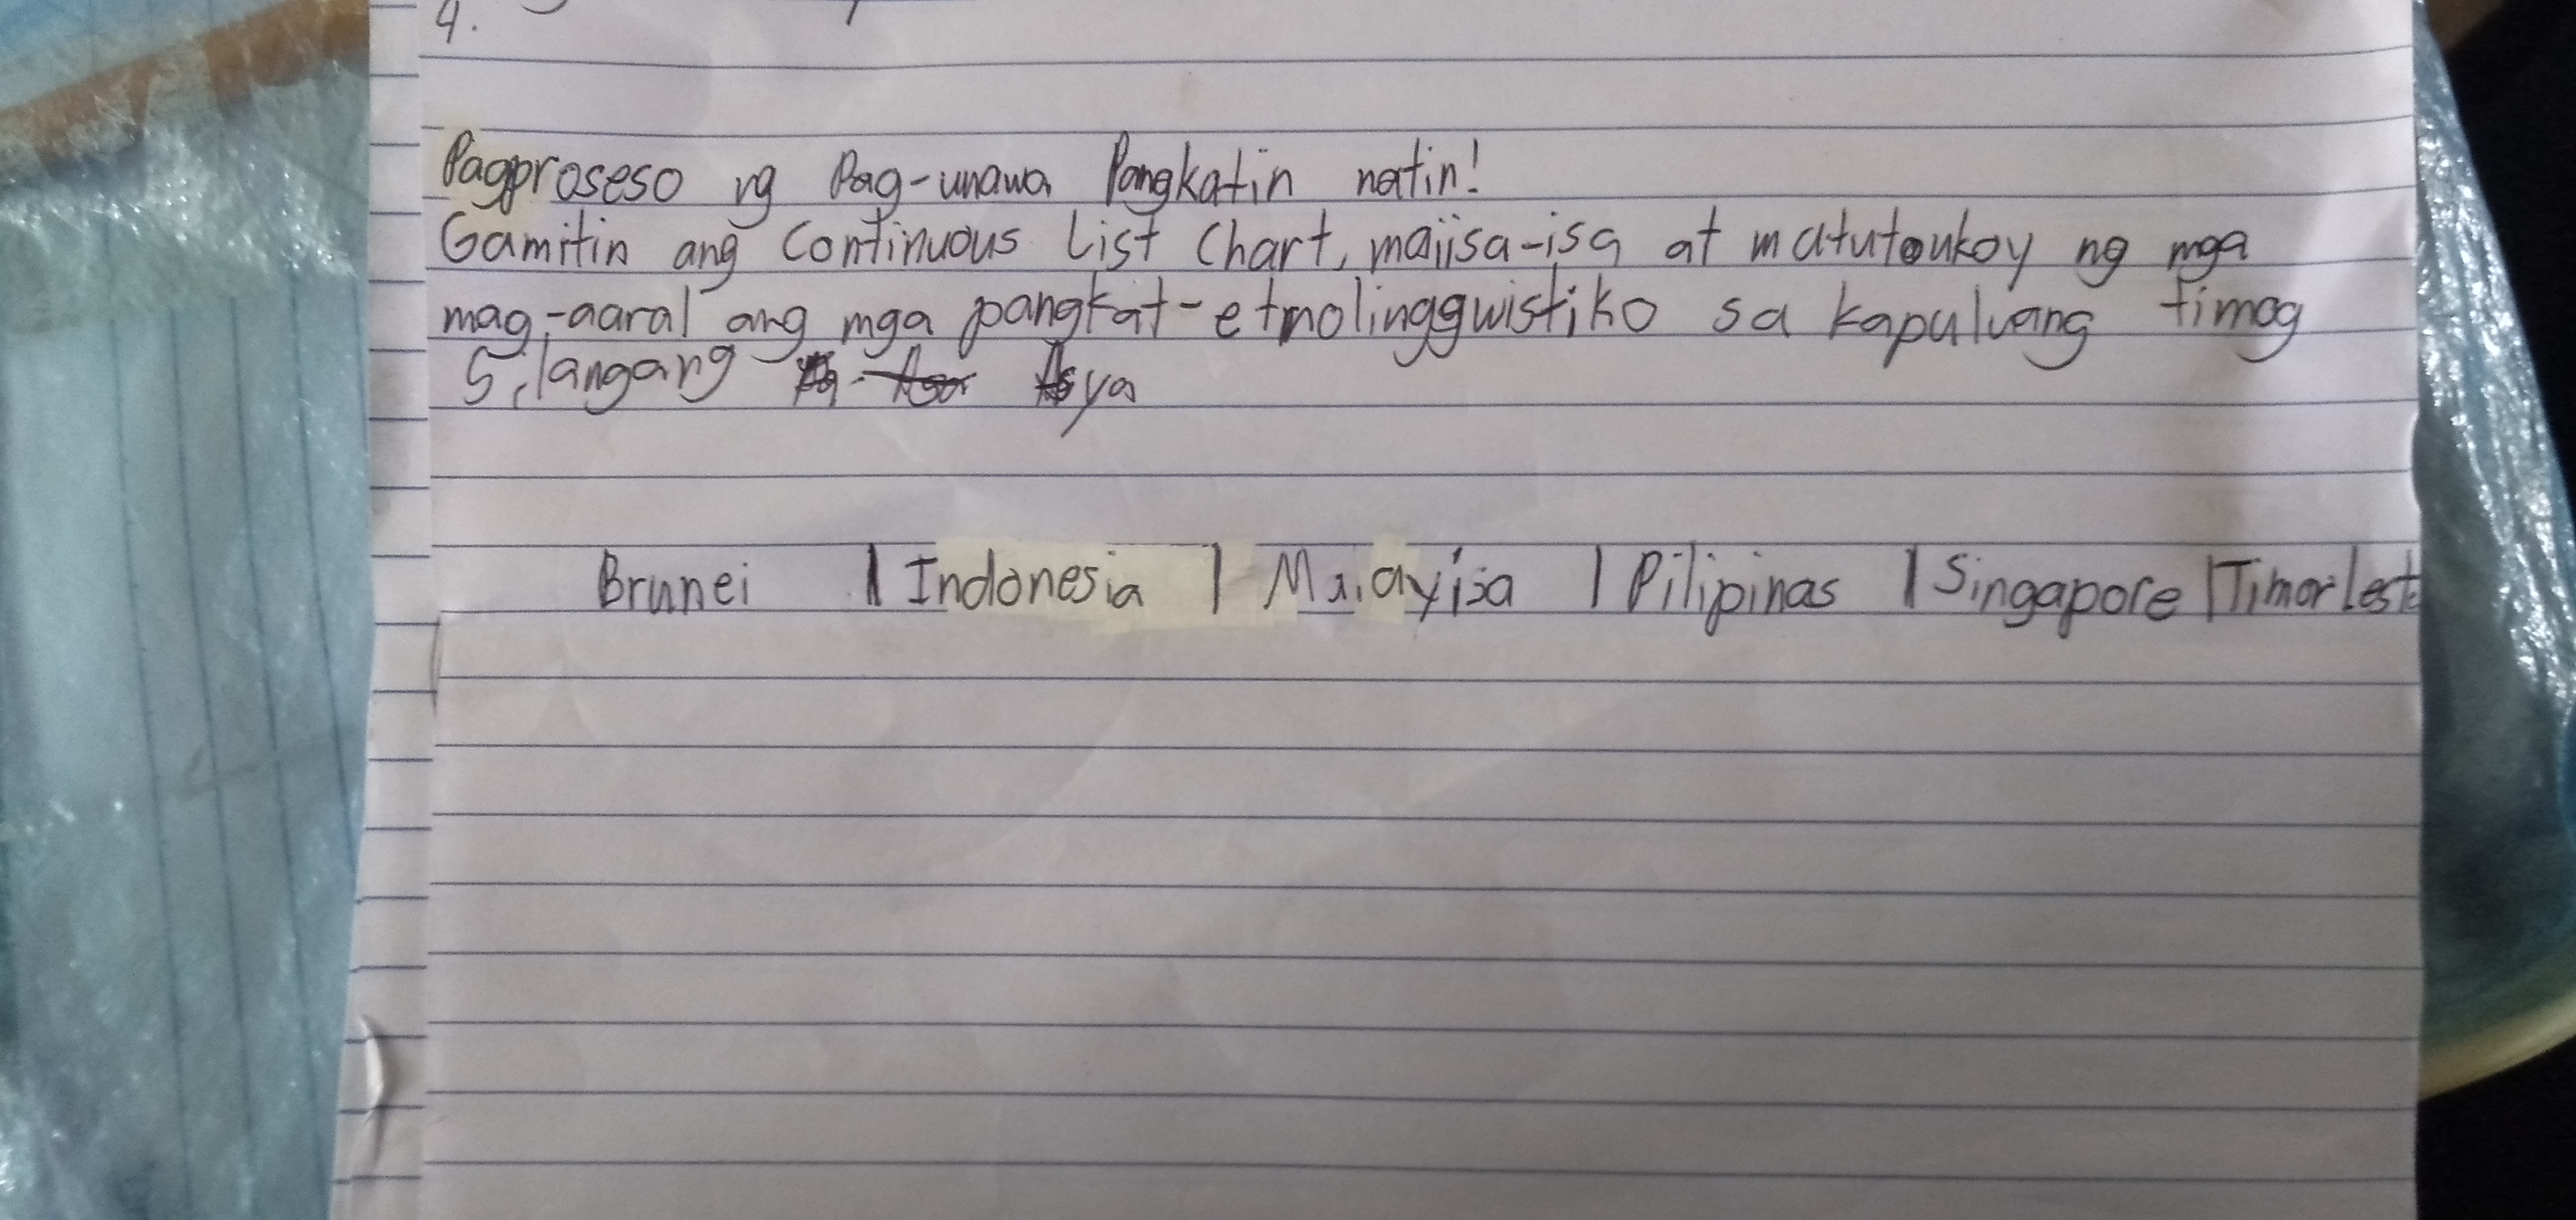 4.
Pagproseso ng Pag-unawa Pangkatin natin!
Gamitin ang Continuous List Chart, maiisa-isa at matutoukoy ng mga
mag-aaral ang mga pangkat-etnolingguwistiko sa kapuluang timog
Silangang Asya
Brunei | Indonesia | Malayisa | Pilipinas | Singapore | Timor leste